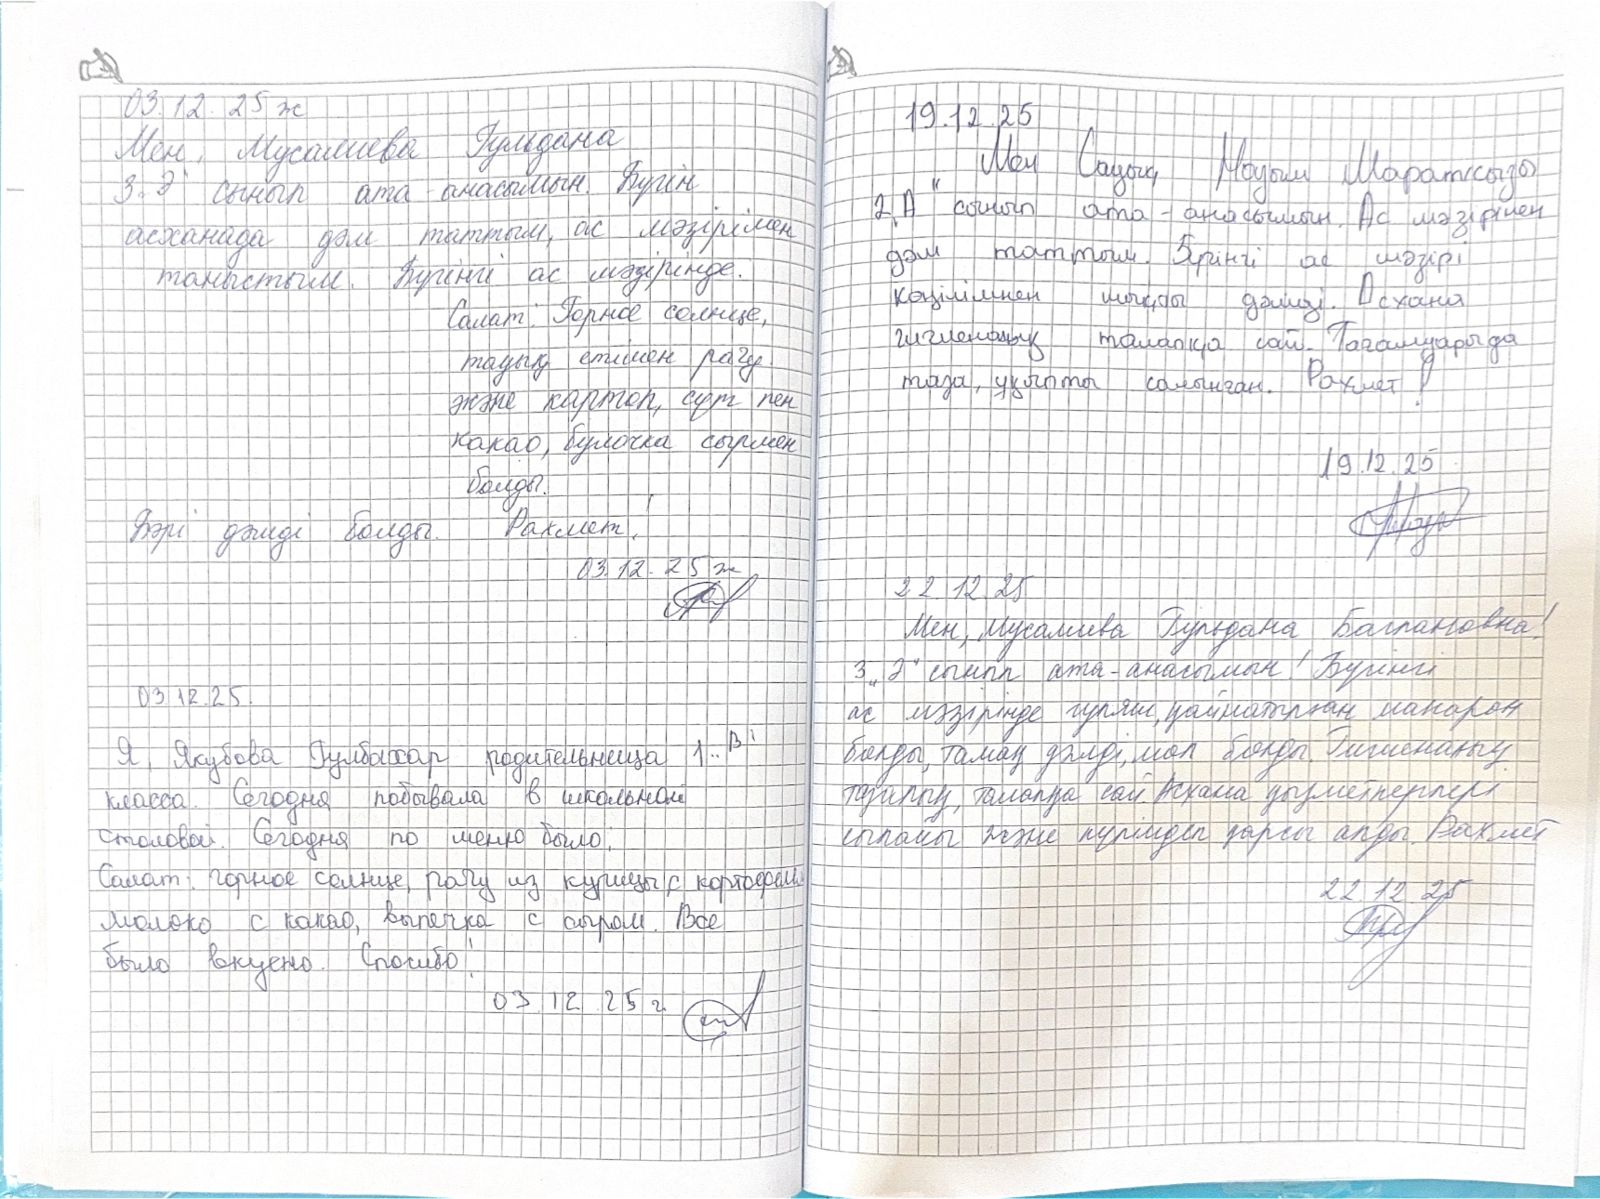 03.12.25 ж
Мен, Мусалиева Гульдана
3 „Ә" сынып ата анасымын. Бүгін
асханада дәм таттым, ас мәзірімен
таныстым. Бүгінгі ас мәзірінде.
Салат: Горное солнце,
тауық етімен рагу
және картоп, сүт пен
какао, булочка сырмен
болды.
Бәрі дәмді болды. Рахмет!
03.12.25 ж
03.12.25.
Я, Якубова Гулбахар родительница 1 „В"
класса. Сегодня побывала в школьной
столовой. Сегодня по меню было:
Салат: горное солнце, рагу из курицы с картофелем
молоко с какао, выпечка с сыром. Все
было вкусно. Спасибо!
03.12.25 г.
19.12.25
Мен Сауық Маратқызы
2 „А" сынып ата-анасымын. Ас мәзірінен
дәм таттым. Бүгінгі ас мәзірі
көңілімнен шықты дәмді. Асхана
гигиеналық талапқа сай. Тағамдарыда
таза, ұқыпты салынған. Рахмет!
19.12.25
22.12.25
Мен, Мусалиева Гульдана Баглановна!
3 „Ә" сынып ата-анасымын! Бүгінгі
ас мәзірінде гуляш, қайнатылған макарон
болды, тамақ дәмді, мол болды. Гигиеналық
тазалық, талапқа сай. Асхана қызметкерлері
сыпайы және күлімдеп қарсы алды. Рахмет
22.12.25